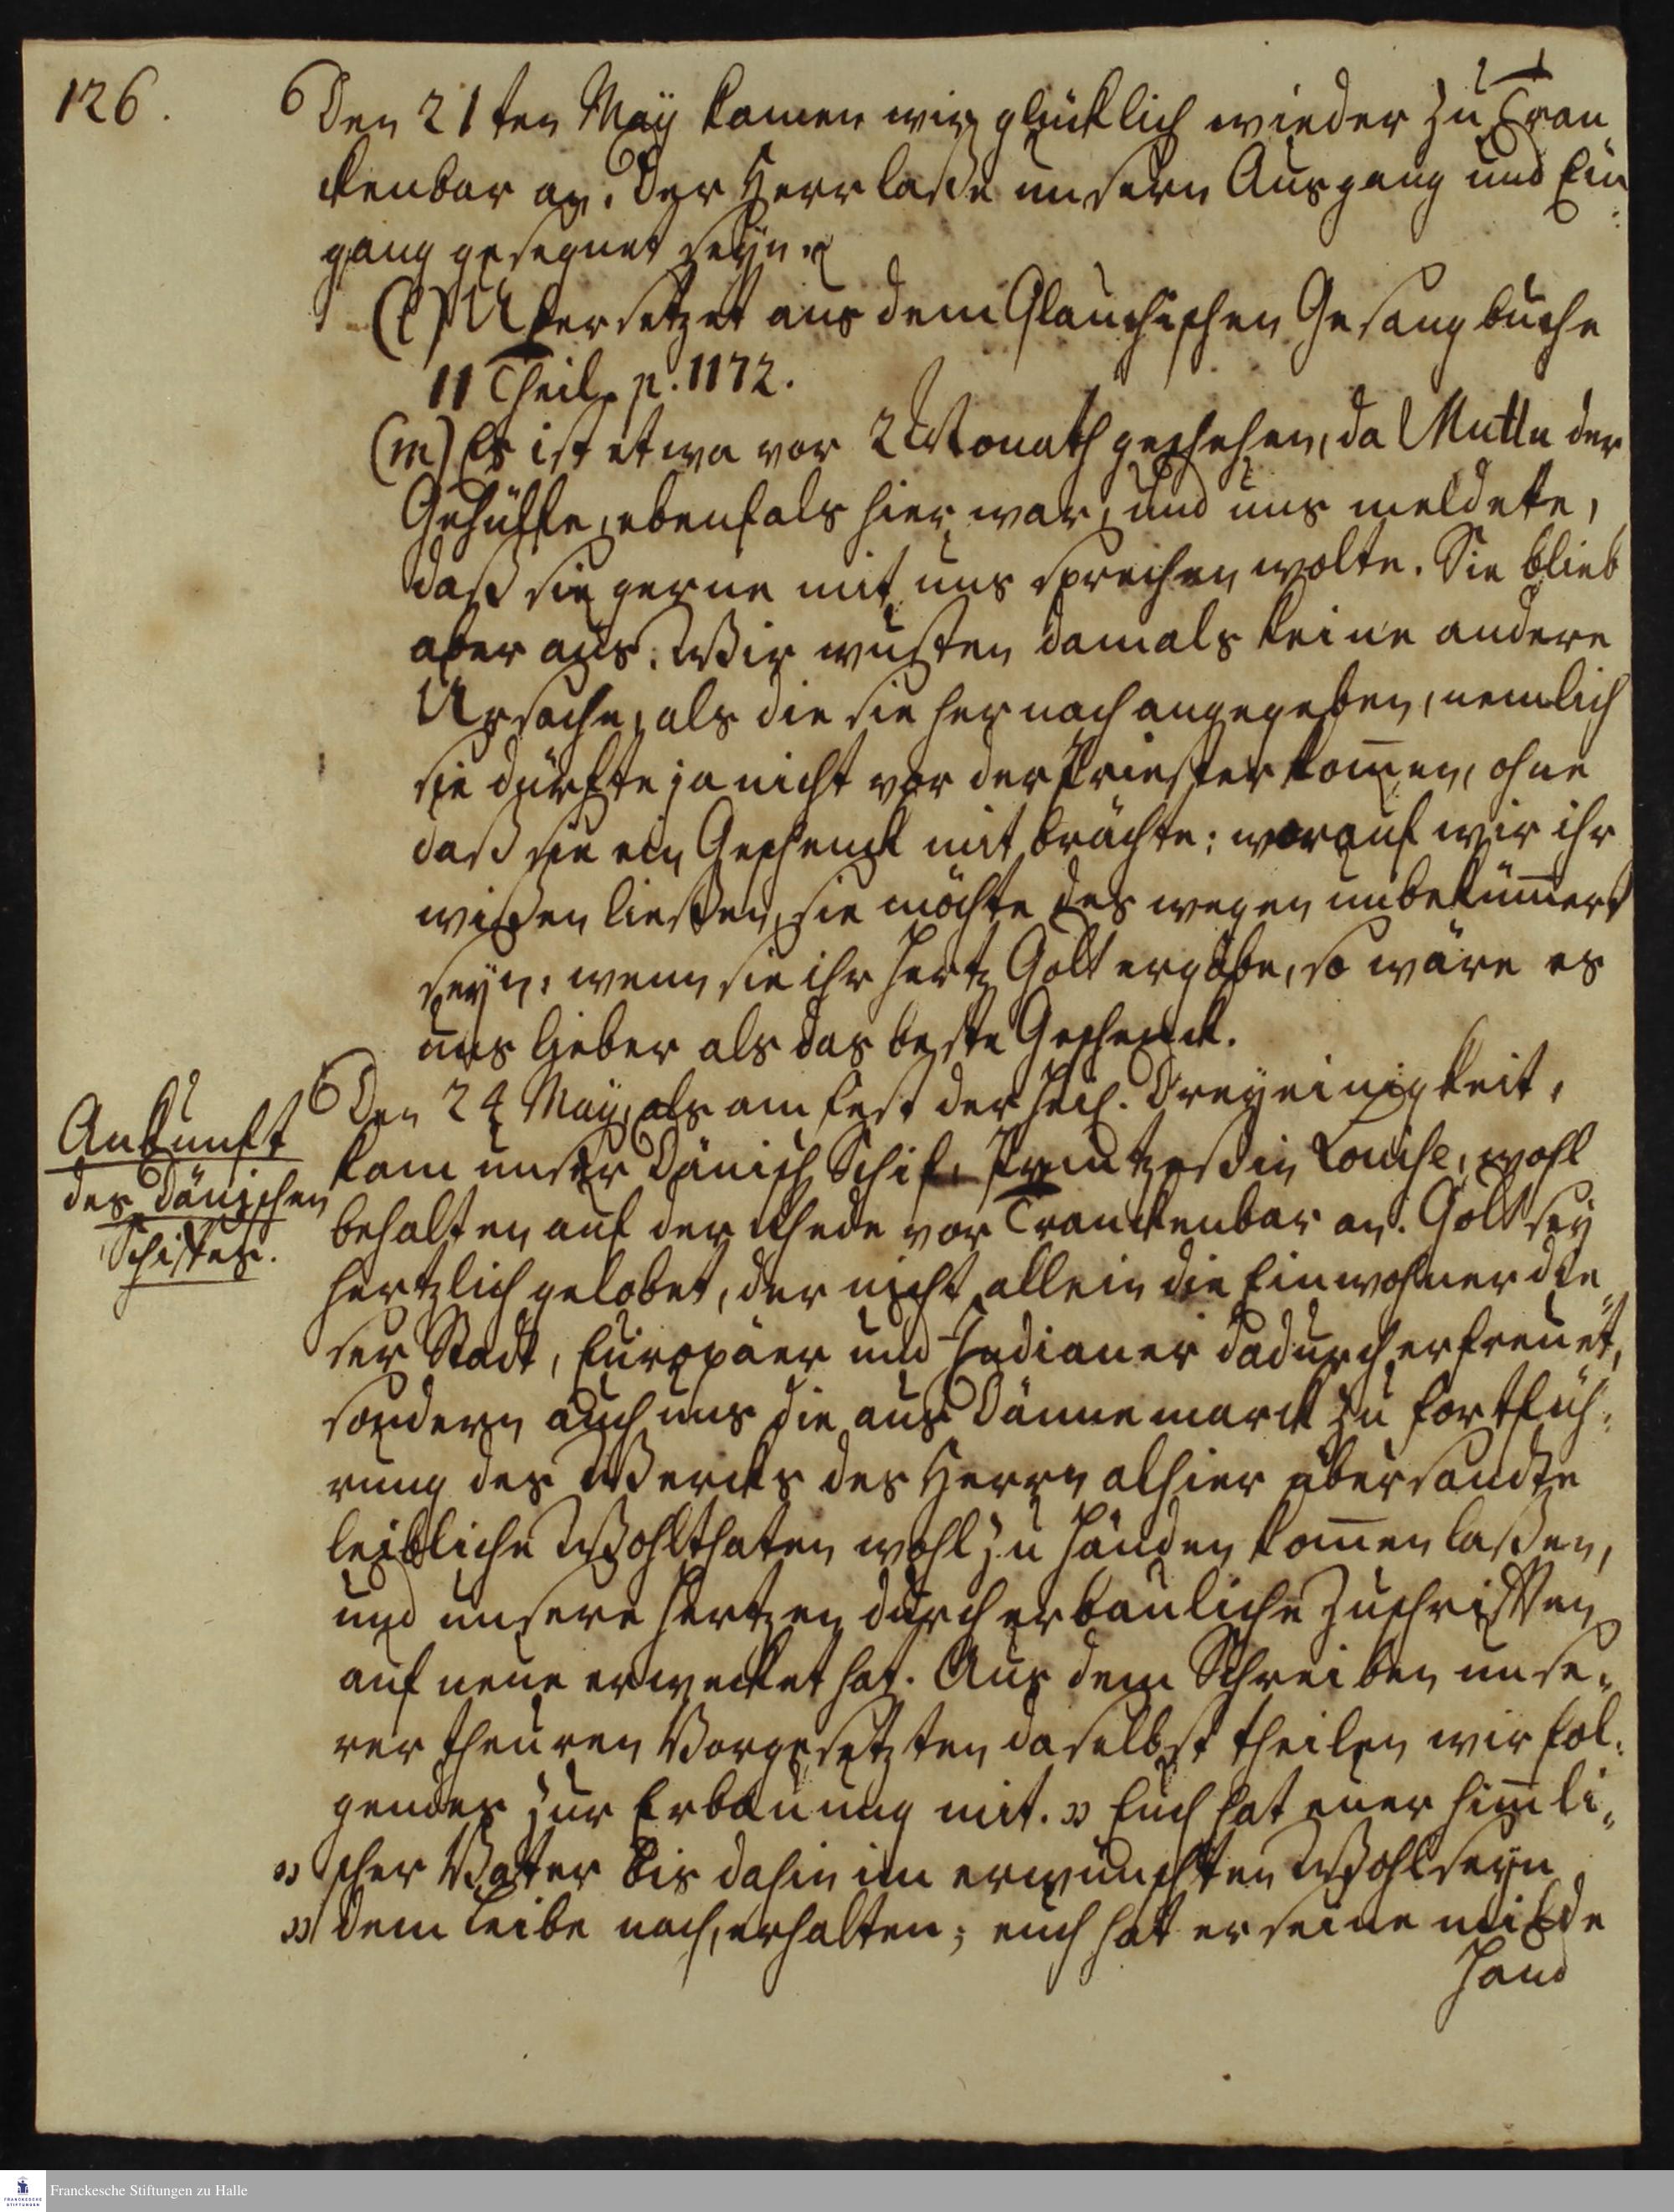 126.
Den 21ten Maÿ kamen wir glücklich wieder zu Tran
ckenbar an. Der Herr laße unsern Ausgang und Ein
gang gesegnet seyn.
(l) Übersetzet aus dem Glauchischen Gesangbuche
II Theil. p. 1172.
(m) Es ist etwa vor 2 Monath geschehen, da Muttu der
Gehülffe, ebenfals hier war, und uns meldete,
daß sie gerne mit uns sprechen wolte. Sie blieb
aber aus. Wir wusten damals keine andere
Ursache, als die sie hernach angegeben, nemlich
sie dürfte ja nicht vor der Priester kom̄en, ohne
daß sie ein Geschenck mit brächte: worauf wir ihr
wißen ließen, sie möchte des wegen unbeküm̄ert
seyn, wenn sie ihr Hertz Gott ergäbe, so wäre es
uns lieber als das beste Geschenck.
Ankunft
des Dänischen
Schiffes.
Den 24 Maÿ, als am Fest der Heil. Dreyeinigkeit,
kam unser Dänisch Schif, Printzeßin Louise, wohl
behalten auf der Rhede vor Tranckenbar an. Gott sey
hertzlich gelobet, der nicht allein die Einwohner die„
ser Stadt, Europäer und Indianer dadurch erfreuet,
sondern auch uns die aus Dännemarck zu Fortfüh„
rung des Wercks des Herrn alhier übersandte
leibliche Wohlthaten wohl zu Händen kom̄en laßen,
und unsere Hertzen durch erbauliche Zuschriften
auf neue erwecket hat. Aus dem Schreiben unse„
rer theuren Vorgesetzten daselbst theilen wir fol„
gendes zur Erbauung mit. „ Euch hat euer him̄li„
„ scher Vater bis dahin im erwünschten Wohlseyn
„ dem Leibe nach, erhalten; euch hat er seine milde
Hand
Franckesche Stiftungen zu Halle